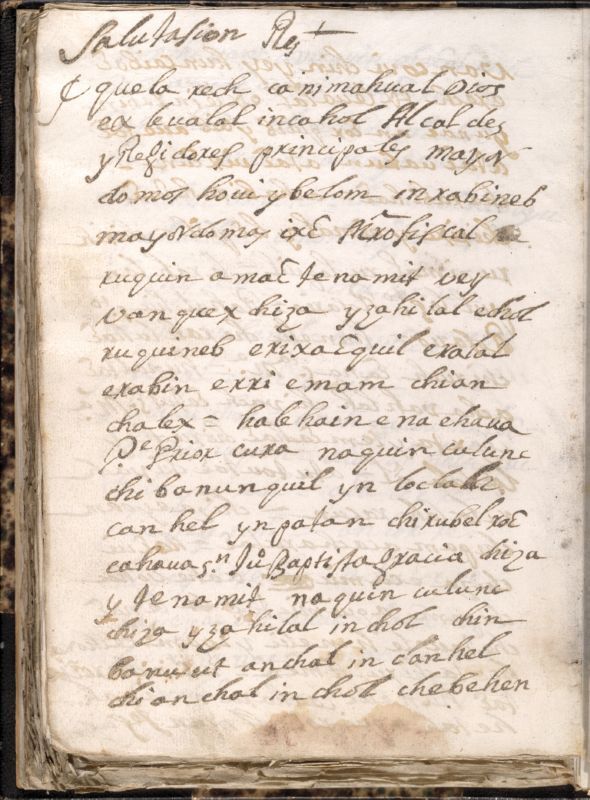 Salutasion Res
quela rech ca nimahual Dios
ex beualal incahol Alcaldes
y Regidores principales mayor
domos houi y belom inrabineb
mayordomas ixc Mro fiscal
ruquin amac tenamit vey
vanquex chiza yzahilal echol
ruquineb erixacquil eralal
erabin erri emam chian
chalex = halehain enaehaua
Pe Prior cura naquin culunc
chibanunquil yn loclah
canhel ynpatan chirubel roc
cahaua sn Juo Baptista gracia chiza
y tenamit naquin culunc
chiza yzahilal inchol chin
banuut anchal in canhel
chianchal inchol chebehen